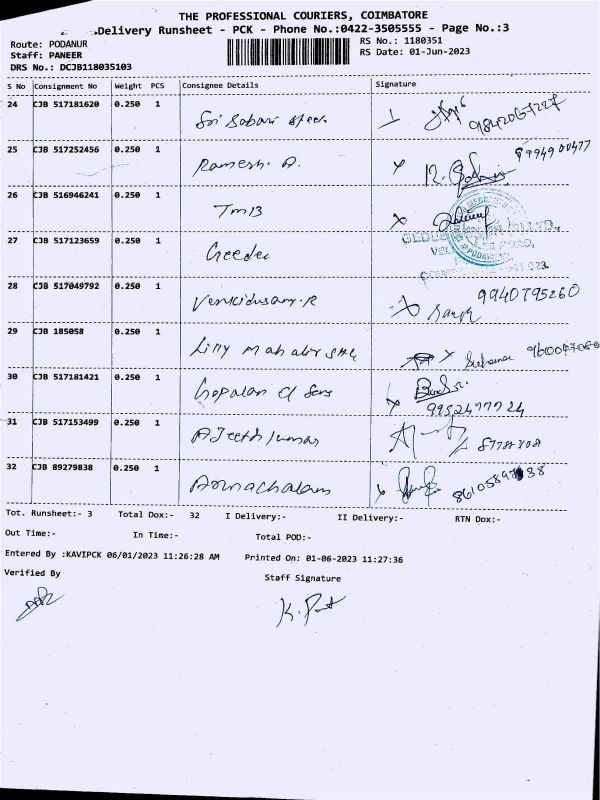 THE PROFESSIONAL COURIERS, COIMBATORE
Delivery Runsheet - PCK - Phone No.:0422-3505555 - Page No.:3
Route: PODANUR RS No.: 1180351
Staff: PANEER RS Date: 01-Jun-2023
DRS No.: DCJB118035103
S No Consignment No Weight PCS Consignee Details Signature
24 CJB 517181620 0.250 1 Sri Sabari steel 9842067227
25 CJB 517252456 0.250 1 Ramesh. A. 9994900477
26 CJB 516946241 0.250 1 TMB
27 CJB 517123659 0.250 1 Geedee
28 CJB 517049792 0.250 1 Venkidusamy.R 9940795260
29 CJB 185058 0.250 1 Lilly
30 CJB 517181421 0.250 1 Gopalan & Sons 9952477724
31 CJB 517153499 0.250 1 AJeeth kumar
32 CJB 89279838 0.250 1 Arunachalam
Tot. Runsheet:- 3 Total Dox:- 32 I Delivery:- II Delivery:- RTN Dox:-
Out Time:- In Time:- Total POD:-
Entered By :KAVIPCK 06/01/2023 11:26:28 AM Printed On: 01-06-2023 11:27:36
Verified By Staff Signature